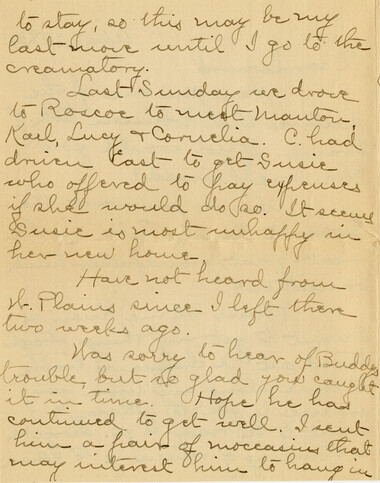 to stay, so this may be my
last move until I go to the
creamatory.
Last Sunday we drove
to Roscoe to meet Manton,
Karl, Lucy & Cornelia. C. had
driven East to get Susie
who offered to pay expenses
if she would do so. It seems
Susie is most unhappy in
her new home.
Have not heard from
W. Plains since I left there
two weeks ago.
Was sorry to hear of Buddes
trouble, but so glad you caught
it in time. Hope he has
continued to get well. I sent
him a pair of moccasins that
may interest him to hang in